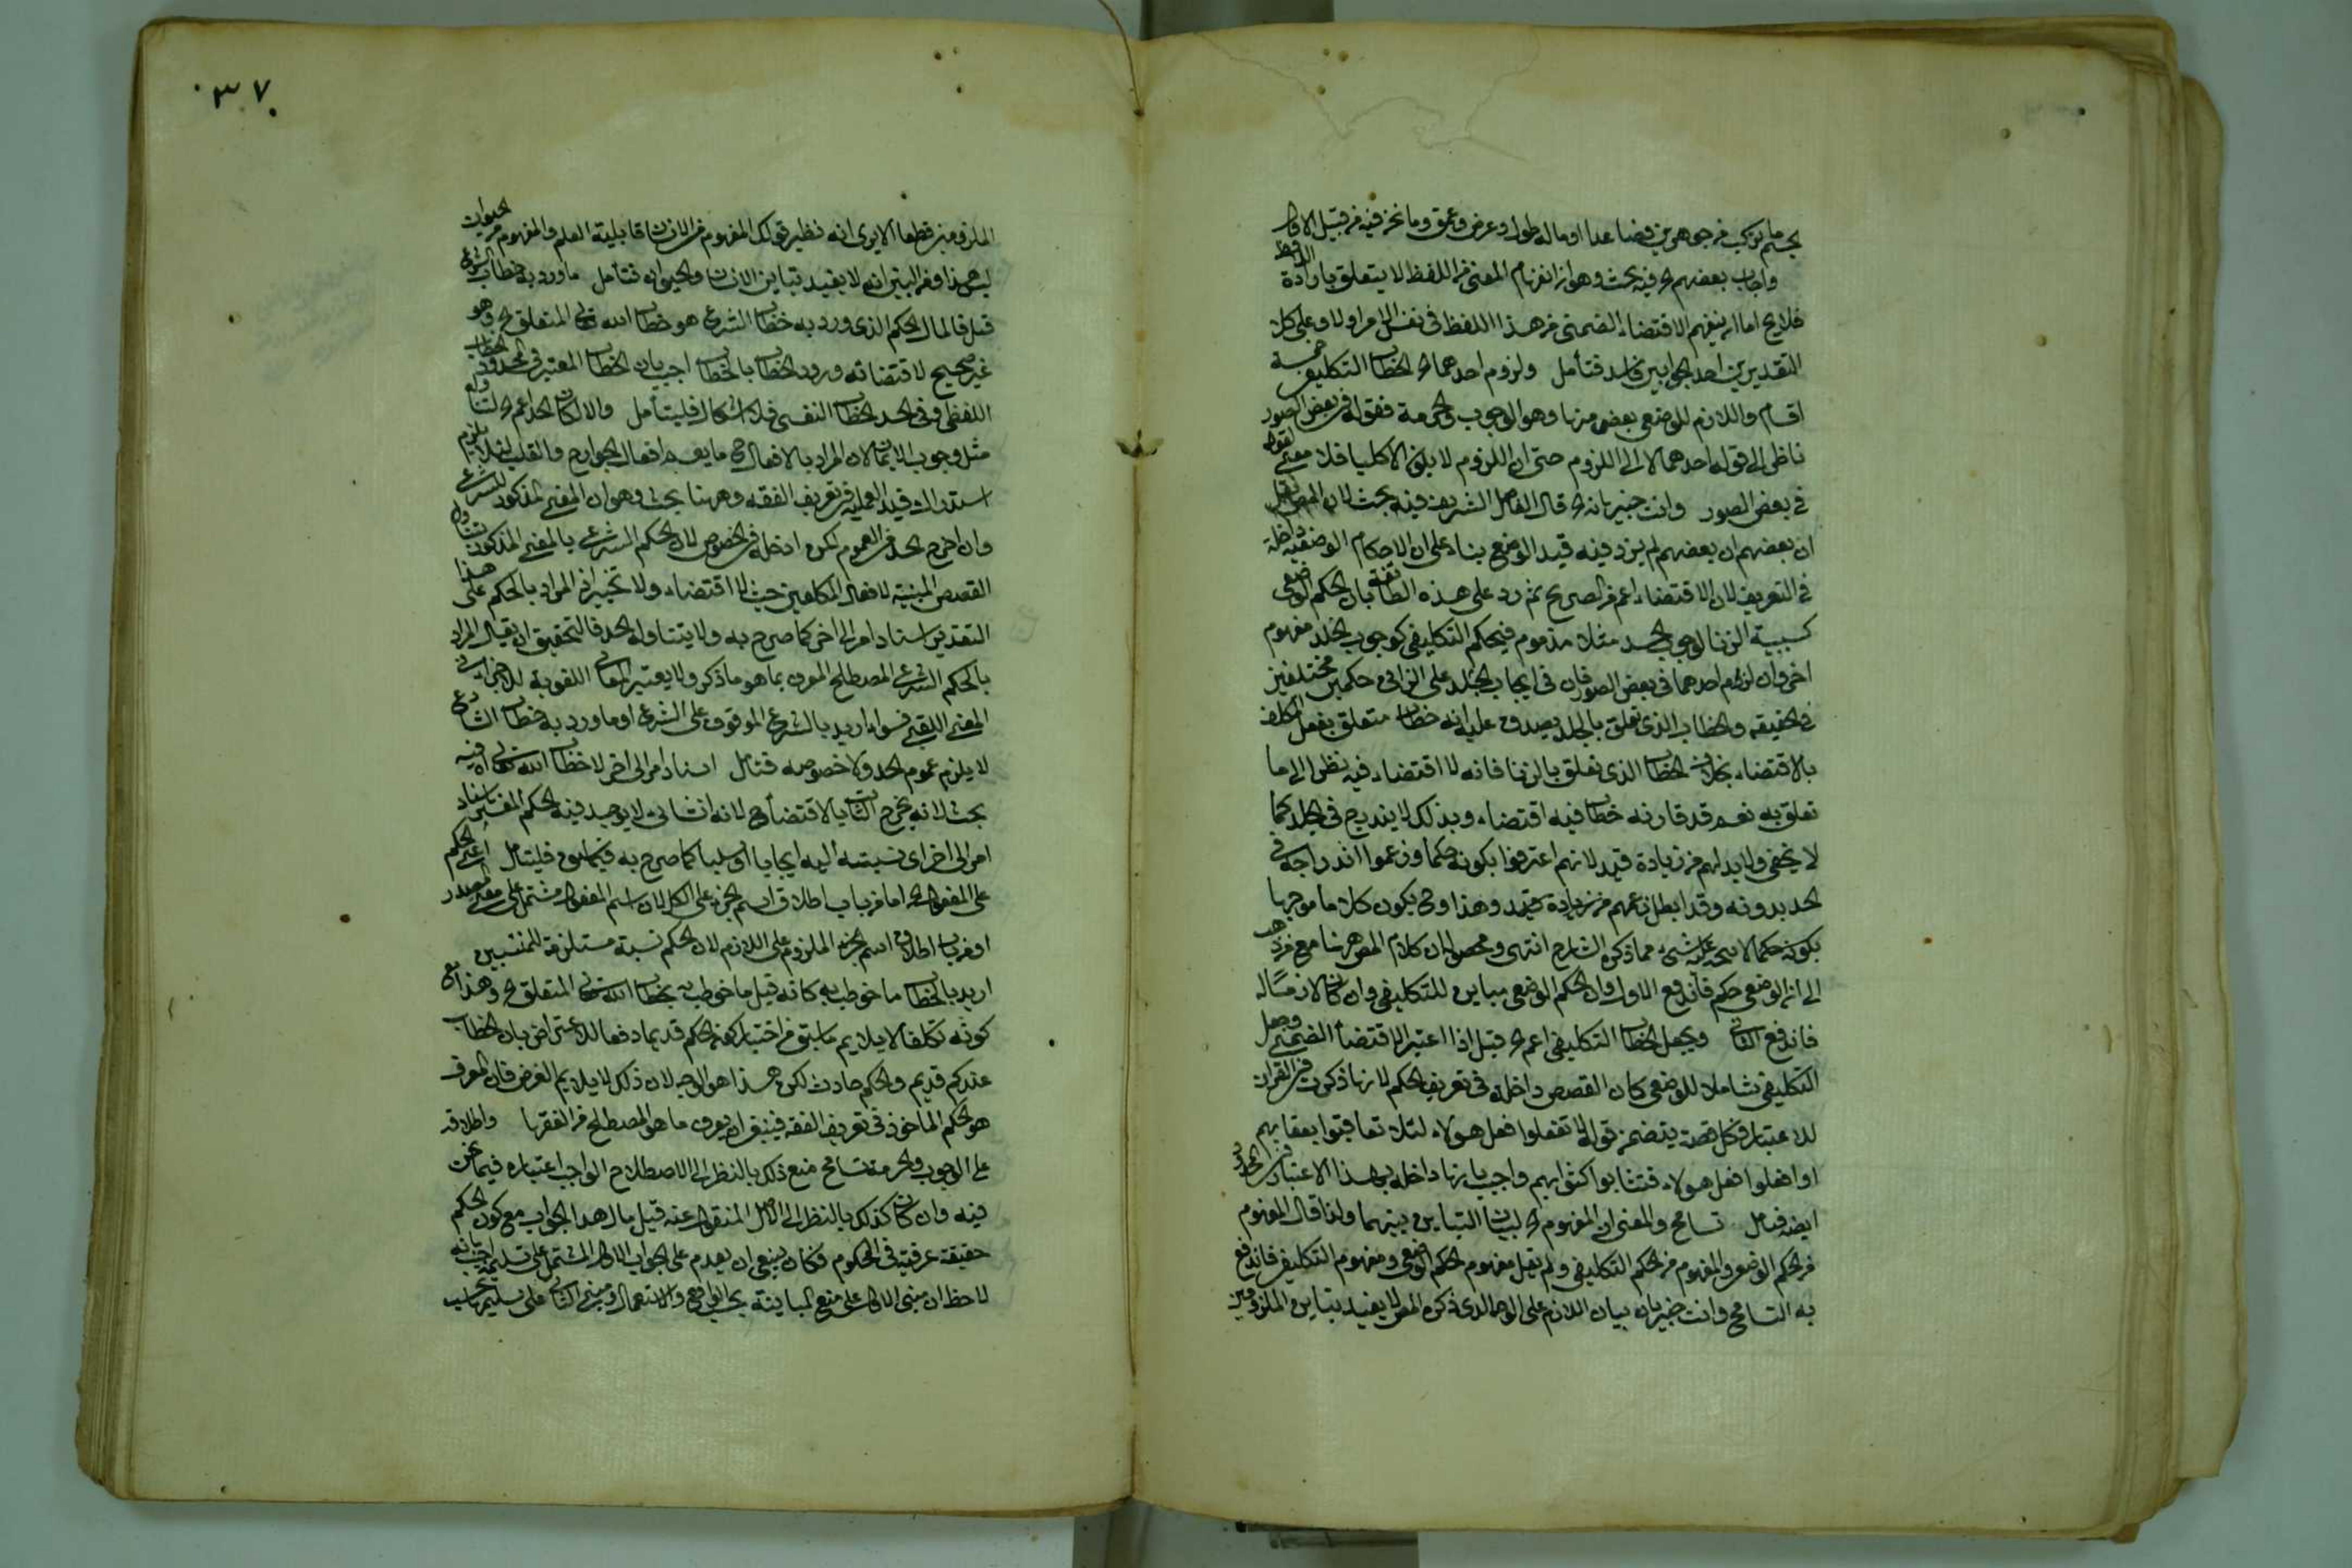 يجسم ما تركب من جوهرين فصاعدا او ماله طول وعرض وعمق وما نحن فيه من قبيل الاول
واجاب بعضهم فيه بحث وهو ان انفهام المعنى من اللفظ لا يتعلق بارادة اللافظ
فلا يخ اما ان ينفهم الاقتضاء الضمنى من هذا اللفظ فى نفس الامر اولا وعلى كل
التقديرين احد الجوابين فاسد فتأمل ولزوم احدهما الخ الخطاب التكليفى خمسة
اقسام واللازم للوضعى بعض منها وهو الوجوب والحرمة فقوله فى بعض الصور
ناظر الى قوله احدهما لا الى اللزوم حتى ان اللزوم لا يكون الا كليا فلا معنى لقوله
فى بعض الصور وانت خبير بانه الخ قال الفاضل الشريف فيه بحث لان المص نقل
ان بعضهم لم يزد فيه قيد الوضع بناء على ان الاحكام الوضعية داخلة
فى التعريف لان الاقتضاء اعم من الصريح ثم رد على هذه الطائفة بان الحكم الوضعى
كسببية الزنا لوجوب الحد مثلا مفهوم فيحكم التكليفى كوجوب الجلد مفهوم
اخر وان لزم احدهما فى بعض الصور فان فى ايجاب الجلد على الزانى حكمين مختلفين
فى الحقيقه والخطاب الذى تعلق بالجلد يصدق عليه انه خطاب متعلق بفعل المكلف
بالاقتضاء بخلاف الخطاب الذى تعلق بالزنا فانه لا اقتضاء فيه نظرا الى ما
تعلق به نعم قد قارنه خطاب فيه اقتضاء وبذلك لا يندرج فى الحد كما
لا يخفى ولا بد لهم من زيادة قيد لانهم اعترفوا بكونه حكما وزعموا اندراجه فى
الحد بدونه وقد ابطل زعمهم من زيادة قيد وهذا وح يكون كلاما موجها
بكونه حكما لا يتجه عليه شىء مما ذكره الشارح انتهى ومحصوله ان كلام المص ههنا مع من ذهب
الى ان الوضعى حكم فاندفع الاول وان الحكم الوضعى مباين للتكليفى وان كان لازما له
فاندفع الثانى ويجعل الخطاب التكليفى اعم الخ قيل اذا اعتبر الاقتضاء الضمنى وجعل
التكليفى شاملا للوضعى كان القصص داخلة فى تعريف الحكم لانها ذكرت فى القرآن
للاعتبار وكل قصة يتضمن قوله لا تفعلوا فعل هولاء لئلا تعاقبوا بعقابهم
او افعلوا فعل هولاء فتثابوا كثوابهم واجيب بانها داخلة بهذا الاعتبار فى الحد
ايضا فتأمل تسامح والمعنى ان المفهوم الخ لبيان التباين بينهما ولذا قال المفهوم
من الحكم الوضعى والمفهوم من الحكم التكليفى ولم يقل مفهوم الحكم الوضعى ومفهوم التكليفى فاندفع
به التسامح وانت خبير بان بيان اللازم على الوجه الذى ذكره المص لا يفيد تباين الملزومين
٣٧
الملزومين قطعا الا يرى انه نظير قولك المفهوم من الانسان قابلية العلم والمفهوم من الحيوان
ليس هذا ومن البين انه لا يفيد تباين الانسان والحيوان فتأمل ما ورد به خطاب الشرع
قيل فالمال الحكم الذى ورد به خطاب الشرع هو خطاب الله تعالى المتعلق الخ وهو
غير صحيح لاقتضائه ورود الخطاب بالخطاب اجيب بان الخطاب المعتبر فى المحدود الخطاب
اللفظى وفى الحد الخطاب النفسى فلا اشكال فليتأمل والا لكان الحد اعم الخ لتناوله
مثل وجوب الايمان لان المراد بالافعال ح ما يعم افعال الجوارح والقلب لئلا يلزم
استدراك قيد العملية فى تعريف الفقه وههنا بحث وهو ان المعنى المذكور للشرعى
وان اخرج الحد من العموم لكن ادخله فى الخصوص لان الحكم الشرعى بالمعنى المذكور يتناول
القصص المبينة لافعال المكلفين حيث لا اقتضاء ولا تخيير اذ المراد بالحكم على هذا
التقدير اسناد امر الى اخر كما صرح به ولا يتناوله الحد فالتحقيق ان يقال المراد
بالحكم الشرعى المصطلح المعرف بما هو ما ذكر ولا يعتبر المعانى اللغوية للاجزاء فى
المعنى اللقبى فسواء اريد بالشرعى الموقوف على الشرع او ما ورد به خطاب الشارع
لا يلزم عموم الحد ولا خصوصه فتأمل اسناد امر الى اخر لا خطاب الله تعالى اه فيه
بحث لانه يخرج الثابت بالاقتضاء ح لانه انشائى لا يوجد فيه الحكم المفسر باسناد
امر الى اخر اى نسبته اليه ايجابا او سلبا كما صرح به فيما سبق فليتأمل اعنى الحكم
على المفعول الخ اما من باب اطلاق اسم الجزء على الكل لان اسم المفعول مشتمل على معنى المصدر
او من باب اطلاق اسم الملزوم على اللازم لان الحكم نسبة مستلزمة للمنتسبين
اريد بالخطاب ما خوطب به كانه قيل ما خوطب به بخطاب الله تعالى المتعلق الخ وهذا مع
كونه تكلفا لا يلايم ما سبق من اختيار كون الحكم قديما دفعا للاعتراض بان الخطاب
عندكم قديم والحكم حادث لكن هذا هو الوجه لان ذلك لا يلايم الغرض فان المعرف
هو الحكم الماخوذ فى تعريف الفقه فينبغى ان يعرف ما هو المصطلح من الفقهاء واطلاقه
على الوجوب والحرمة تسامح منع ذلك بالنظر الى الاصطلاح الواجب اعتباره فيما نحن
فيه وان كان كذلك بالنظر الى الاصل المنقول عنه قيل مال هذا الجواب مع كون الحكم
حقيقة عرفية فى المحكوم فكان ينبغى ان يقدم على الجواب الاول المشتمل على تسليم اجيب بانه
لاحظ ان مبنى الاول على منع المباينة بحسب الواقع والاستعمال ومبنى الثانى على تسليم بحسب